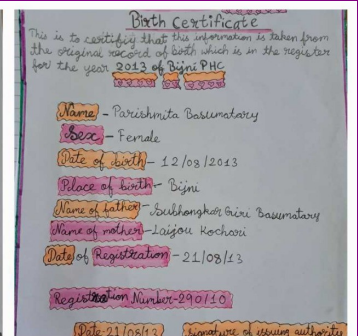 Birth Certificate
This is to certifiy that this information is taken from
the original record of birth which is in the register
for the year 2013 of Bijni PHC
Name - Parishmita Basumatary
Sex - Female
Date of birth - 12/08/2013
Pelace of birth - Bijni
Name of father - Subhongkar Giri Basumatary
Name of mother - Laijou Kochari
Date of Registration - 21/08/13
Registration Number - 290/10
Date-21/08/13 signature of issuing authority